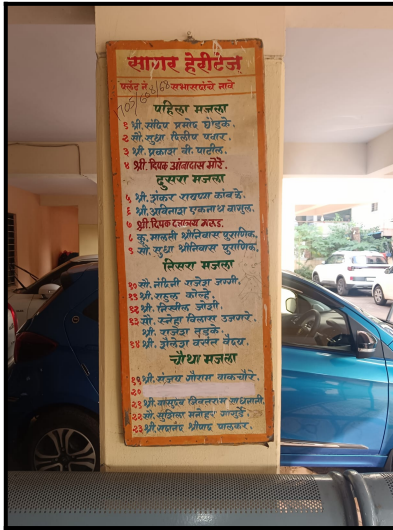 सागर हेरीटेज
फ्लॅट नं. सभासदांचे नावे
पहिला मजला
१ श्री. संदिप प्रमोद घोडके.
२ सौ. सुधा दिलीप पवार.
३ श्री. प्रकाश बी. पाटील.
४ श्री. दिपक अंबादास मोरे.
दुसरा मजला
५ श्री. शंकर रायप्पा कांबळे.
६ श्री. अविनाश एकनाथ
७ श्री. दिपक दत्तात्रय
८ कु. मालती श्रीनिवास पुराणिक.
९ सौ. सुधा श्रीनिवास पुराणिक.
तिसरा मजला
१० सौ. नंदिनी राजेश जग्गी.
११ श्री. राहुल कोल्हे.
१२ श्री. निखील जोशी.
१३ सौ. स्नेहा विलास उजगरे.
श्री. राजेश तुडके.
१४ श्री. शैलेश वसंत वैद्य.
चौथा मजला
१९ श्री. संजय गौराम वाकचौरे
२०
२१ श्री. वासुदेव जिवतराम साधनानी.
२२ सौ. सुशिला मनोहर गासुर्डे.
२३ श्री. सदानंद श्रीपाद पालकर.